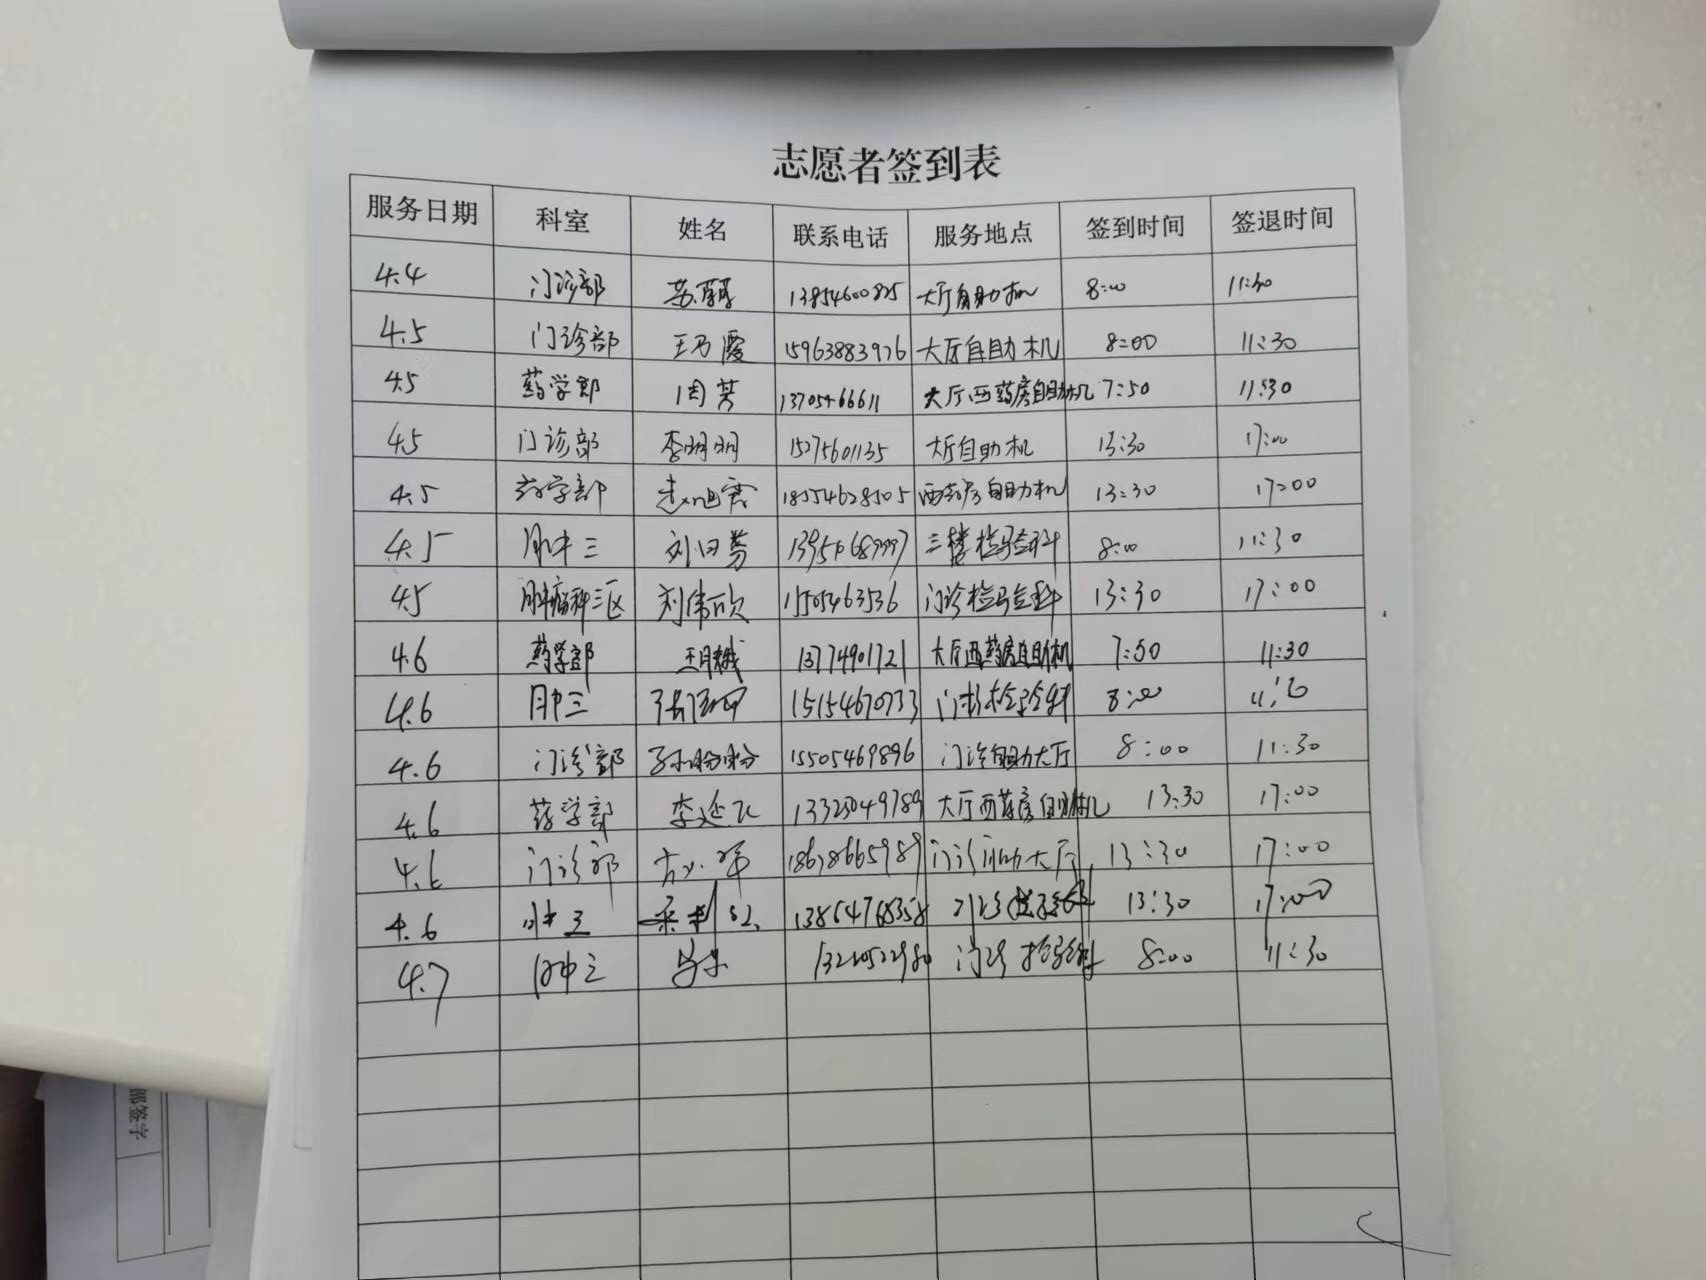 志愿者签到表
服务日期 科室 姓名 联系电话 服务地点 签到时间 签退时间
4.4 门诊部 苏 13854600825 大厅自助机 8:00 11:30
4.5 门诊部 王乃霞 15963883976 大厅自助机 8:00 11:30
4.5 药学部 周芳 13705466611 大厅西药房自助机 7:50 11:30
4.5 门诊部 李明明 15275601135 大厅自助机 13:30 17:00
4.5 药学部 18554628505 西药房自助机 13:30 17:00
4.5 肿三 刘 三楼检验科 8:00 11:30
4.5 肿瘤科三区 刘伟欣 15505463536 门诊检验科 13:30 17:00
4.6 药学部 13774901721 大厅西药房自助机 7:50 11:30
4.6 肿三 15154670733 门诊检验科 8:00
4.6 门诊部 孙盼盼 15505469896 门诊自助大厅 8:00 11:30
4.6 药学部 李延飞 13325049789 大厅西药房自助机 13:30 17:00
4.6 门诊部 18678665989 门诊自助大厅 13:30 17:00
4.6 肿三 13864768358 13:30 17:00
4.7 肿三 13220522980 门诊检验科 8:00 11:30
签字